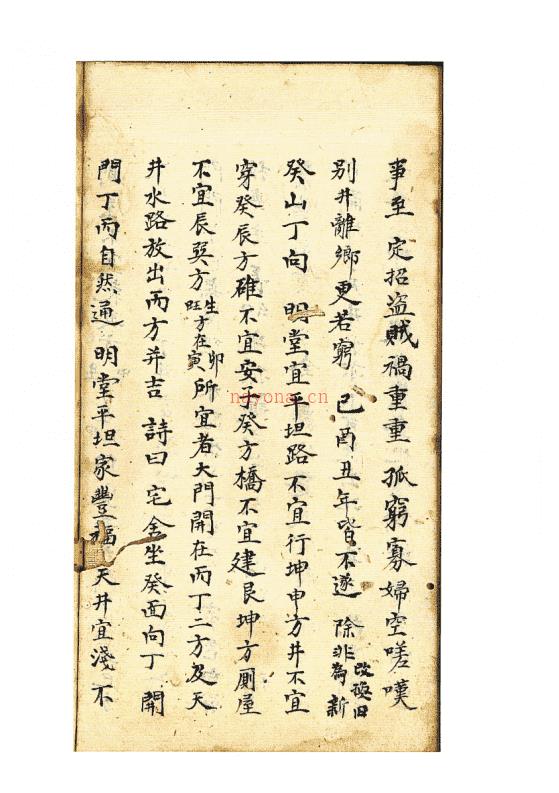 事至 定招盗賊禍重重 孤窮寡婦空嗟嘆
别井離鄉更若窮 己酉丑年皆不遂 除非改換旧為新
癸山丁向 明堂宜平坦路不宜行坤申方井不宜
穿癸辰方碓不宜安于癸方橋不宜建艮坤方厠屋
不宜辰巽方生旺方在卯寅所宜者大門開在丙丁二方及天
井水路放出丙方并吉 詩曰 宅舍坐癸面向丁 開
門丁丙自然通 明堂平坦家豐福 天井宜淺不
nayona.cn